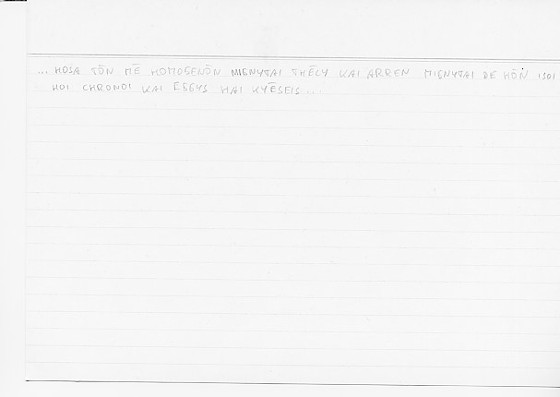 ... HOSA TŌN MĒ HOMOGENŌN MIGNYTAI THĒLY KAI ARREN MIGNYTAI DE HŌN ISOI
HOI CHRONOI KAI EGGYS HAI KYĒSEIS ...